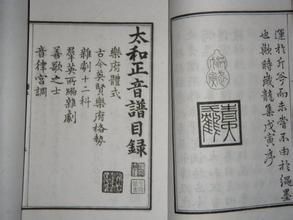 運於斤斧而未嘗不由於繩墨
也歟時歲龍集戊寅序
太和正音譜目錄
樂府體式
古今英賢樂府格勢
雜劇十二科
羣英所編雜劇
善歌之士
音律宮調